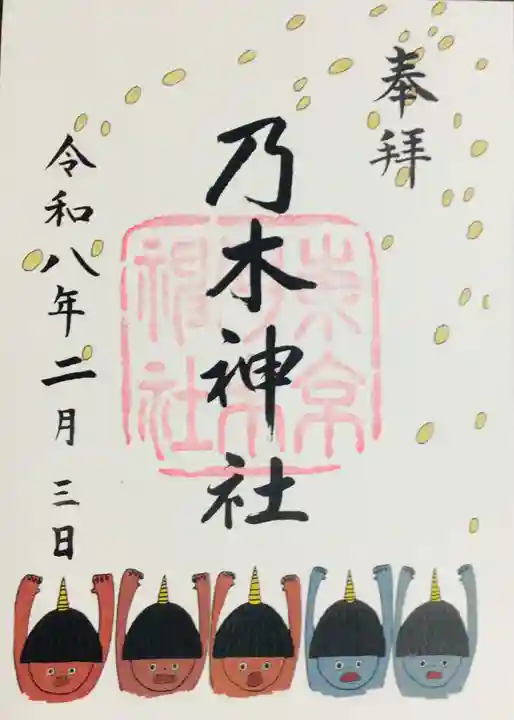 奉拝
乃木神社
令和八年二月三日
東京
乃木
神社